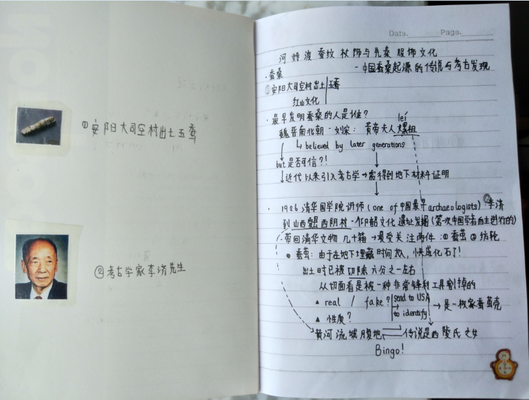 ①安阳大司空村出土玉蚕
②考古学家李济先生
Date. Page.
河姆渡蚕纹杖饰与先秦服饰文化
·蚕桑 - 中国蚕桑起源的传信与考古发现
①安阳大司空村出土玉蚕
红山文化
·最早发明蚕桑的人是谁?
léi
魏晋南北朝·刘宋: 黄帝夫人嫘祖
↳ believed by later generations
but 是否可信?!
近代以来引入考古学→需得到地下材料证明
1926 清华国学院讲师 (one of 中国最早 archaeologists) ②李济
到山西西阴村·仰韶文化遗址发掘 (首次中国学者自主进行的)
带回清华文物几十箱→最受关注两件: ①蚕茧 ②纺轮
①蚕茧: 由于在地下埋藏时间故, 快炭化石了!
出土时已被切除六分之一左右
从切面看是被一种非常锋利工具割掉的
▲ real / fake? send to USA → 是一枚家蚕茧壳
to identify
▲ 性质?
黄河流域腹地 传说是西陵氏之女
Bingo!